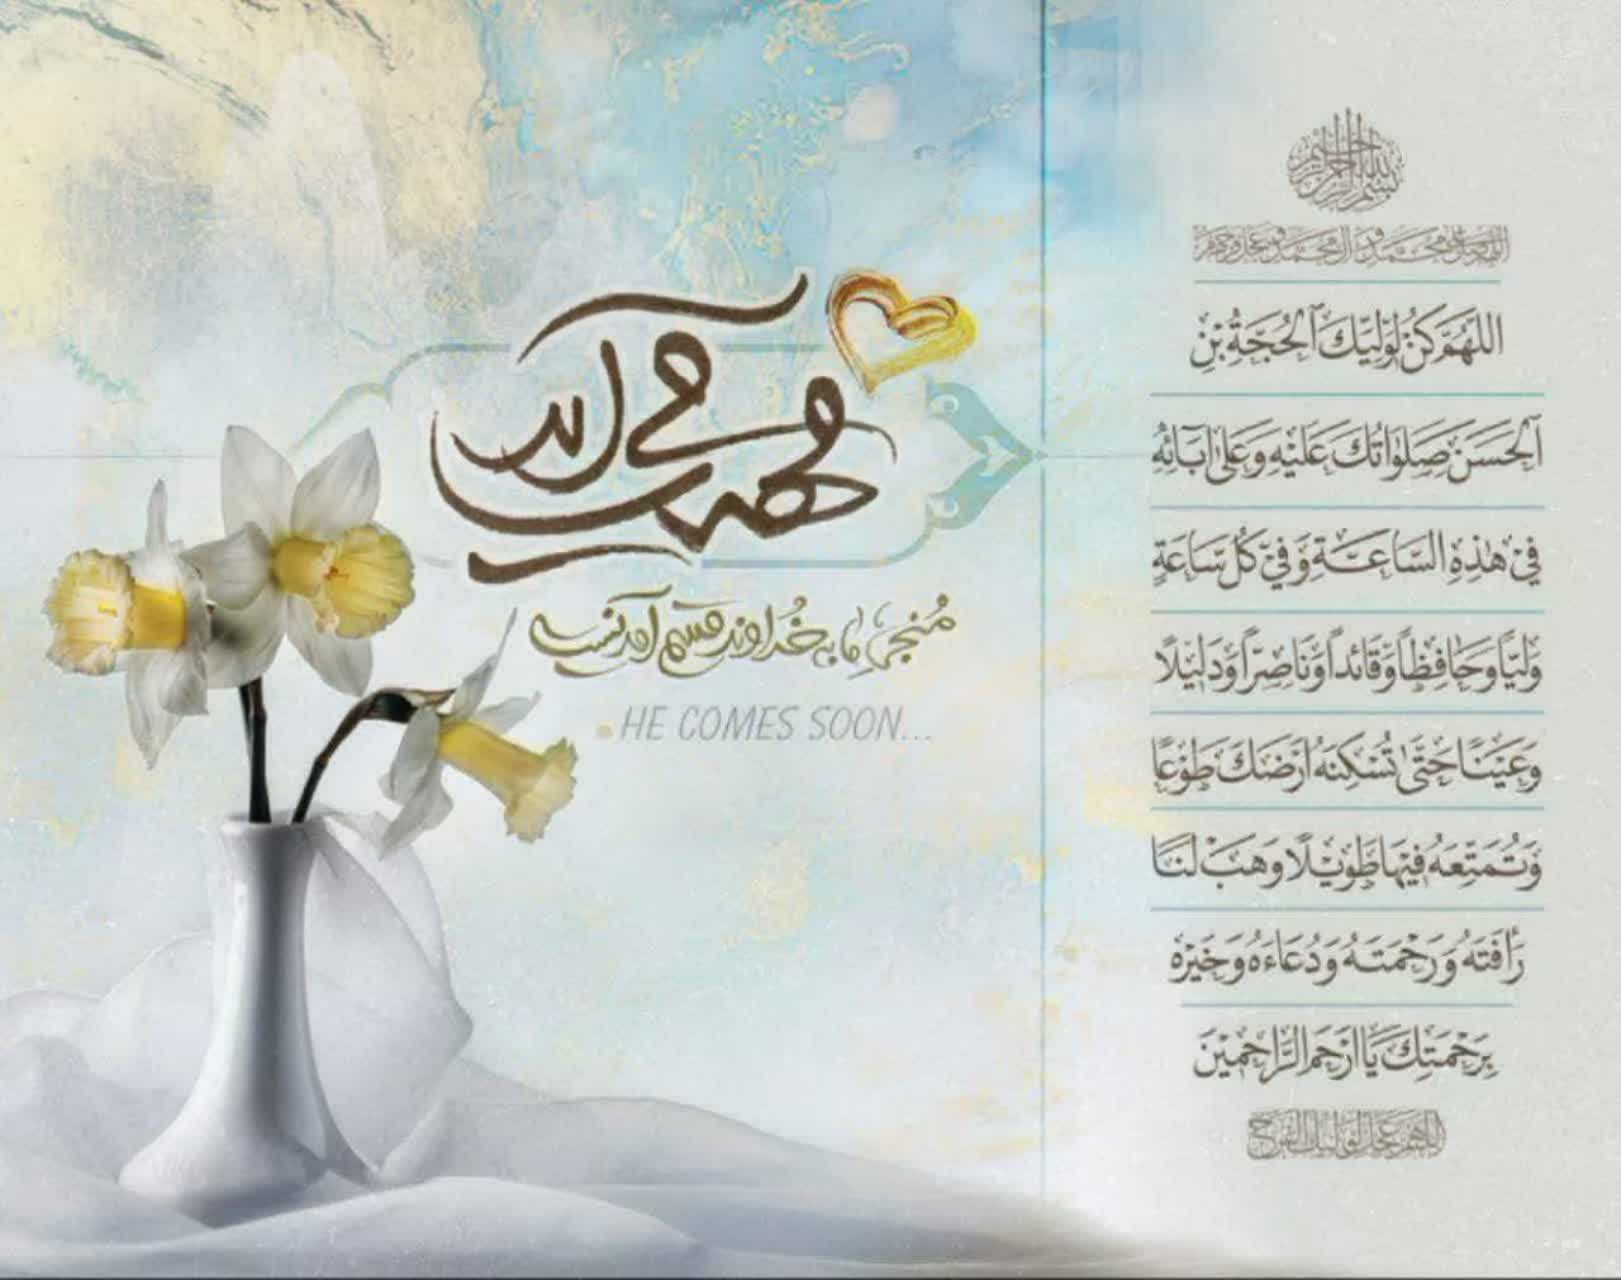 بسم الله الرحمن الرحیم
اللهم صل علی محمد و آل محمد و عجل فرجهم
اللهُمَّ كُنْ لِوَلِيِّكَ الْحُجَّةِ بْنِ
الْحَسَنِ صَلَوٰاتُكَ عَلَيْهِ وَعَلىٰ آبَائِهِ
فِي هٰذِهِ السَّاعَةِ وَفِي كُلِّ سَاعَةٍ
وَلِيّاً وَحَافِظاً وَقَائِداً وَنَاصِراً وَدَلِيلًا
وَعَيْناً حَتَّىٰ تُسْكِنَهُ أَرْضَكَ طَوْعاً
وَتُمَتِّعَهُ فِيهَا طَوِيلًا وَهَبْ لَنَا
رَأْفَتَهُ وَرَحْمَتَهُ وَدُعَاءَهُ وَخَيْرَهُ
بِرَحْمَتِكَ يَا أَرْحَمَ الرَّاحِمِينَ
اللهم عجل لولیک الفرج
می آید
مُنجیِ ما به خُداوند قسم آمدنیست
HE COMES SOON...